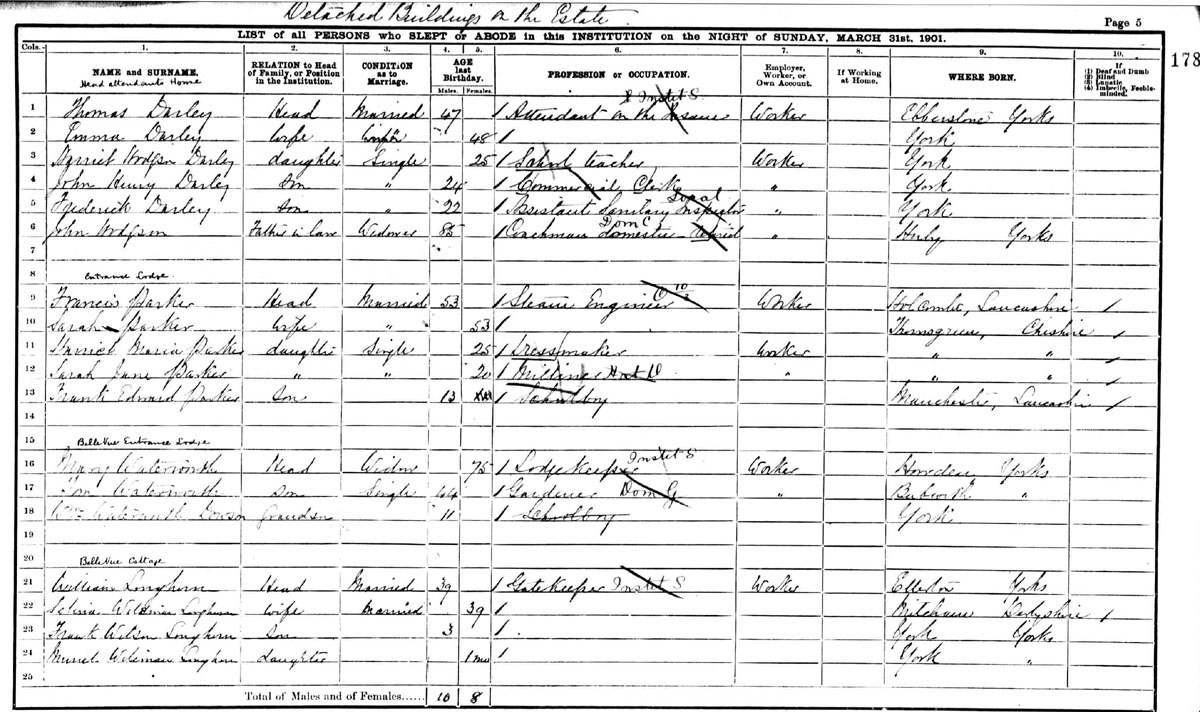 Detached Buildings on the Estate
Page 5
LIST of all PERSONS who SLEPT or ABODE in this INSTITUTION on the NIGHT of SUNDAY, MARCH 31st, 1901.
178
Cols.— 1. 2. 3. 4. 5. 6. 7. 8. 9. 10.
NAME and SURNAME. RELATION to Head of Family, or Position in the Institution. CONDITION as to Marriage. AGE last Birthday. Males. Females. PROFESSION or OCCUPATION. Employer, Worker, or Own Account. If Working at Home. WHERE BORN. If (1) Deaf and Dumb (2) Blind (3) Lunatic (4) Imbecile, Feeble-minded.
Head attendants Home
1 Thomas Darley Head Married 47 1 Attendant on the Insane Instit S. Worker Ebberstone Yorks
2 Emma Darley Wife 48 1 York
3 Harriet Hodgson Darley daughter Single 25 1 School teacher Worker York
4 John Henry Darley Son " 24 1 Commercial Clerk " York
5 Frederick Darley Son " 22 1 Assistant Sanitary Inspector " York
6 John Hodgson Father in law Widower 1 Coachman domestic Domc Retired " Huby Yorks
7
8 Entrance Lodge
9 Francis Parker Head Married 53 1 Steam Engineer Worker Holcombe, Lancashire 1
10 Sarah Parker Wife " 53 1 Cheshire 1
11 Harriet Maria Parker daughter Single 25 1 Dressmaker Worker " " 1
12 Sarah Jane Parker " " 20 1 Milliner " " " 1
13 Frank Edward Parker Son 13 1 Schoolboy Manchester, Lancashire 1
14
15 Belle Vue Entrance Lodge
16 Mary Waterworth Head Widow 75 1 Lodge Keeper Instit S Worker Howden Yorks
17 Tom Waterworth Son Single 44 1 Gardener Dom G " Bubwith "
18 Wm Waterworth Dowson Grandson 11 1 Schoolboy York
19
20 Belle Vue Cottage
21 William Longhorn Head Married 39 1 Gatekeeper Instit S Worker Ellerton Yorks
22 Selina Longhorn Wife Married 39 1 Derbyshire 1
23 Frank Longhorn Son 3 1 York Yorks
24 Longhorn daughter 1 mo 1 York "
25
Total of Males and of Females...... 10 8